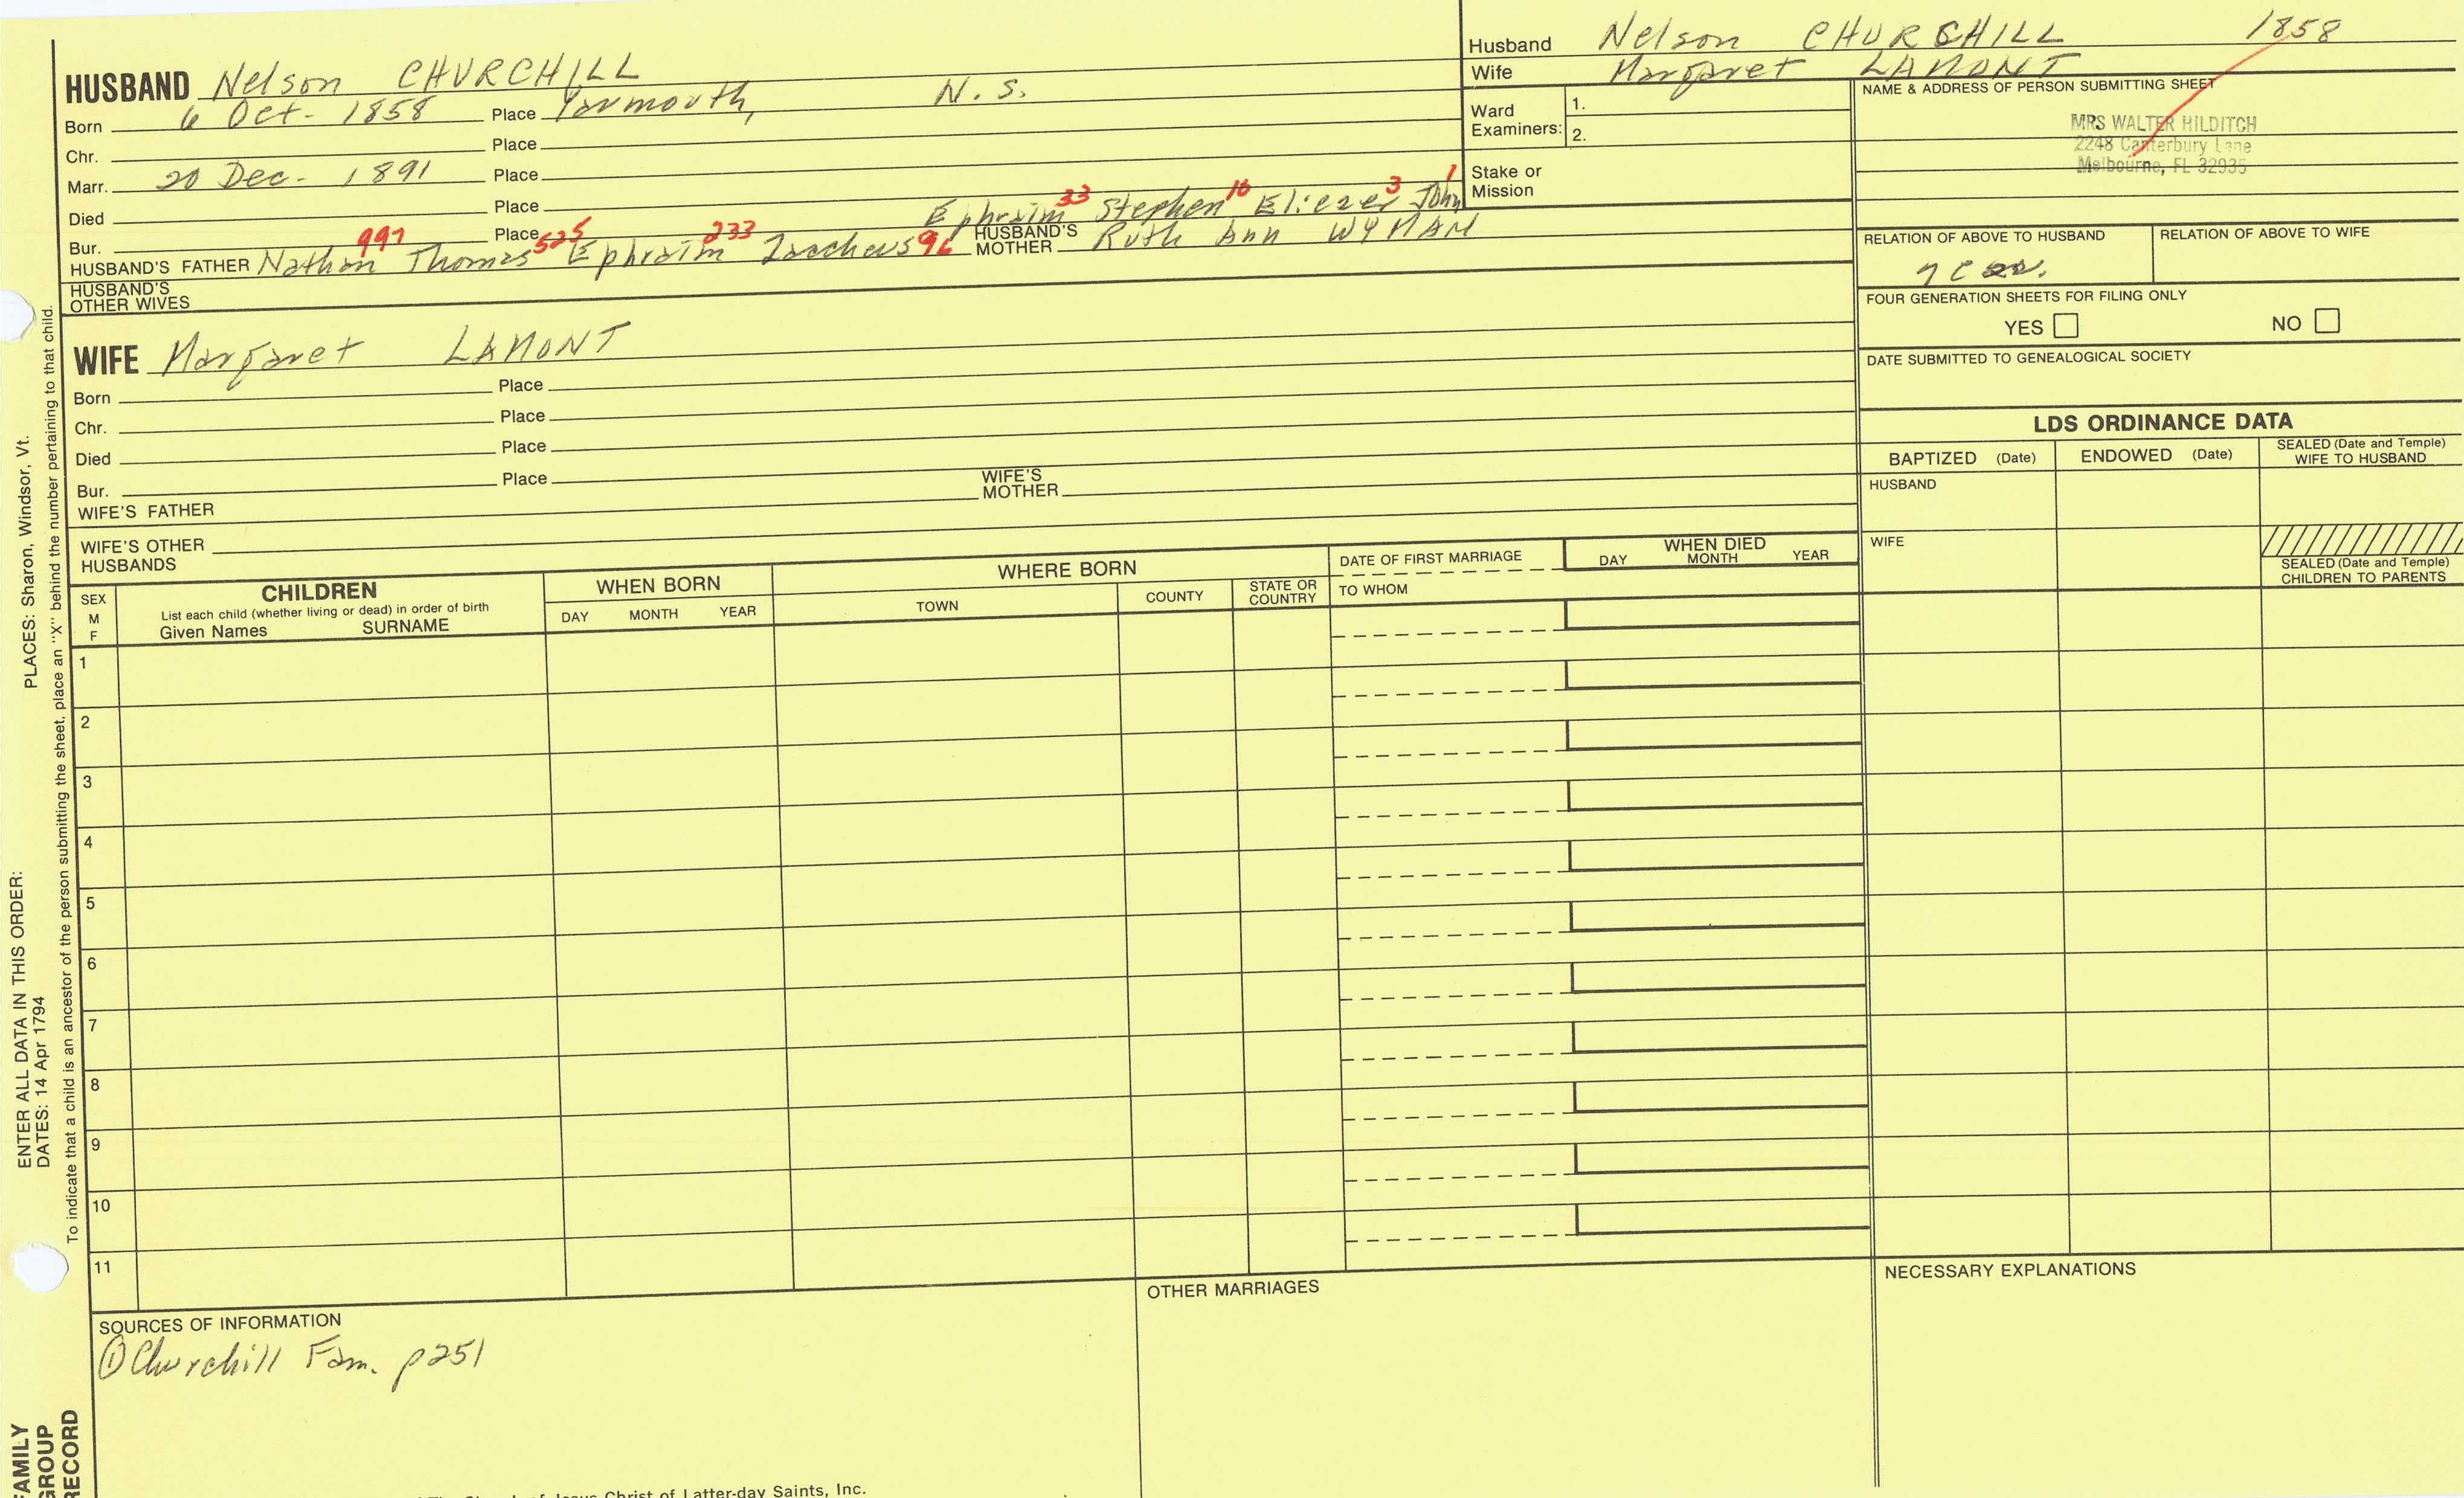 Husband Nelson CHURCHILL 1858
Wife Margaret LAMONT
HUSBAND Nelson CHURCHILL
Born 6 Oct. 1858 Place Yarmouth, N.S.
Chr. Place
Marr. 20 Dec. 1891 Place
Died Place
Bur. Place
Ephraim 33 Stephen 16 Eliezer 3 John 1
HUSBAND'S FATHER Nathan 997 Thomas 525 Ephraim 233 Zacchaus 96 HUSBAND'S MOTHER Ruth Ann WYMAN
HUSBAND'S OTHER WIVES
Ward Examiners: 1.
2.
Stake or Mission
NAME & ADDRESS OF PERSON SUBMITTING SHEET
MRS WALTER HILDITCH
2248 Canterbury Lane
Melbourne, FL 32935
RELATION OF ABOVE TO HUSBAND RELATION OF ABOVE TO WIFE
FOUR GENERATION SHEETS FOR FILING ONLY
YES NO
DATE SUBMITTED TO GENEALOGICAL SOCIETY
WIFE Margaret LAMONT
Born Place
Chr. Place
Died Place
Bur. Place
WIFE'S FATHER WIFE'S MOTHER
WIFE'S OTHER HUSBANDS
LDS ORDINANCE DATA
BAPTIZED (Date) ENDOWED (Date) SEALED (Date and Temple) WIFE TO HUSBAND
HUSBAND
WIFE
SEALED (Date and Temple) CHILDREN TO PARENTS
SEX M F
CHILDREN
List each child (whether living or dead) in order of birth
Given Names SURNAME
WHEN BORN
DAY MONTH YEAR
WHERE BORN
TOWN COUNTY STATE OR COUNTRY
DATE OF FIRST MARRIAGE
TO WHOM
WHEN DIED
DAY MONTH YEAR
1
2
3
4
5
6
7
8
9
10
11
SOURCES OF INFORMATION
① Churchill Fam. p251
OTHER MARRIAGES
NECESSARY EXPLANATIONS
of Jesus Christ of Latter-day Saints, Inc.
FAMILY GROUP RECORD
ENTER ALL DATA IN THIS ORDER:
DATES: 14 Apr 1794
PLACES: Sharon, Windsor, Vt.
To indicate that a child is an ancestor of the person submitting the sheet, place an "X" behind the number pertaining to that child.